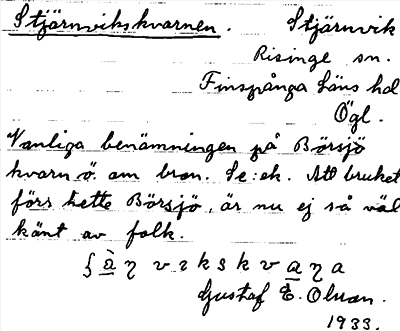 Stjärnvikskvarnen. Stjärnvik
Risinge sn.
Finspånga Läns hd
Ögl.
Vanliga benämningen på Börsjö
kvarn ö. om bron. Se: ek. Att bruket
förs hette Börsjö, är nu ej så väl
känt av folk.
Gustaf E. Olsson.
1933.